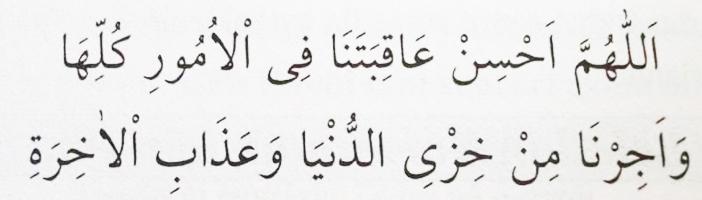 اَللّٰهُمَّ اَحْسِنْ عَاقِبَتَنَا فِى اْلاُمُورِ كُلِّهَا
وَاَجِرْنَا مِنْ خِزْىِ الدُّنْيَا وَعَذَابِ اْلاٰخِرَةِ